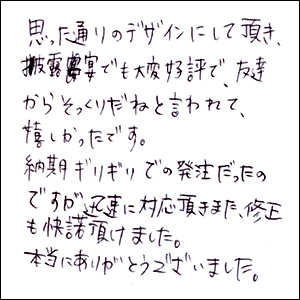 思った通りのデザインにして頂き、
披露宴でも大変好評で、友達
からそっくりだねと言われて、
嬉しかったです。
納期ギリギリでの発注だったの
ですが迅速に対応頂きまた、修正
も快諾頂けました。
本当にありがとうございました。